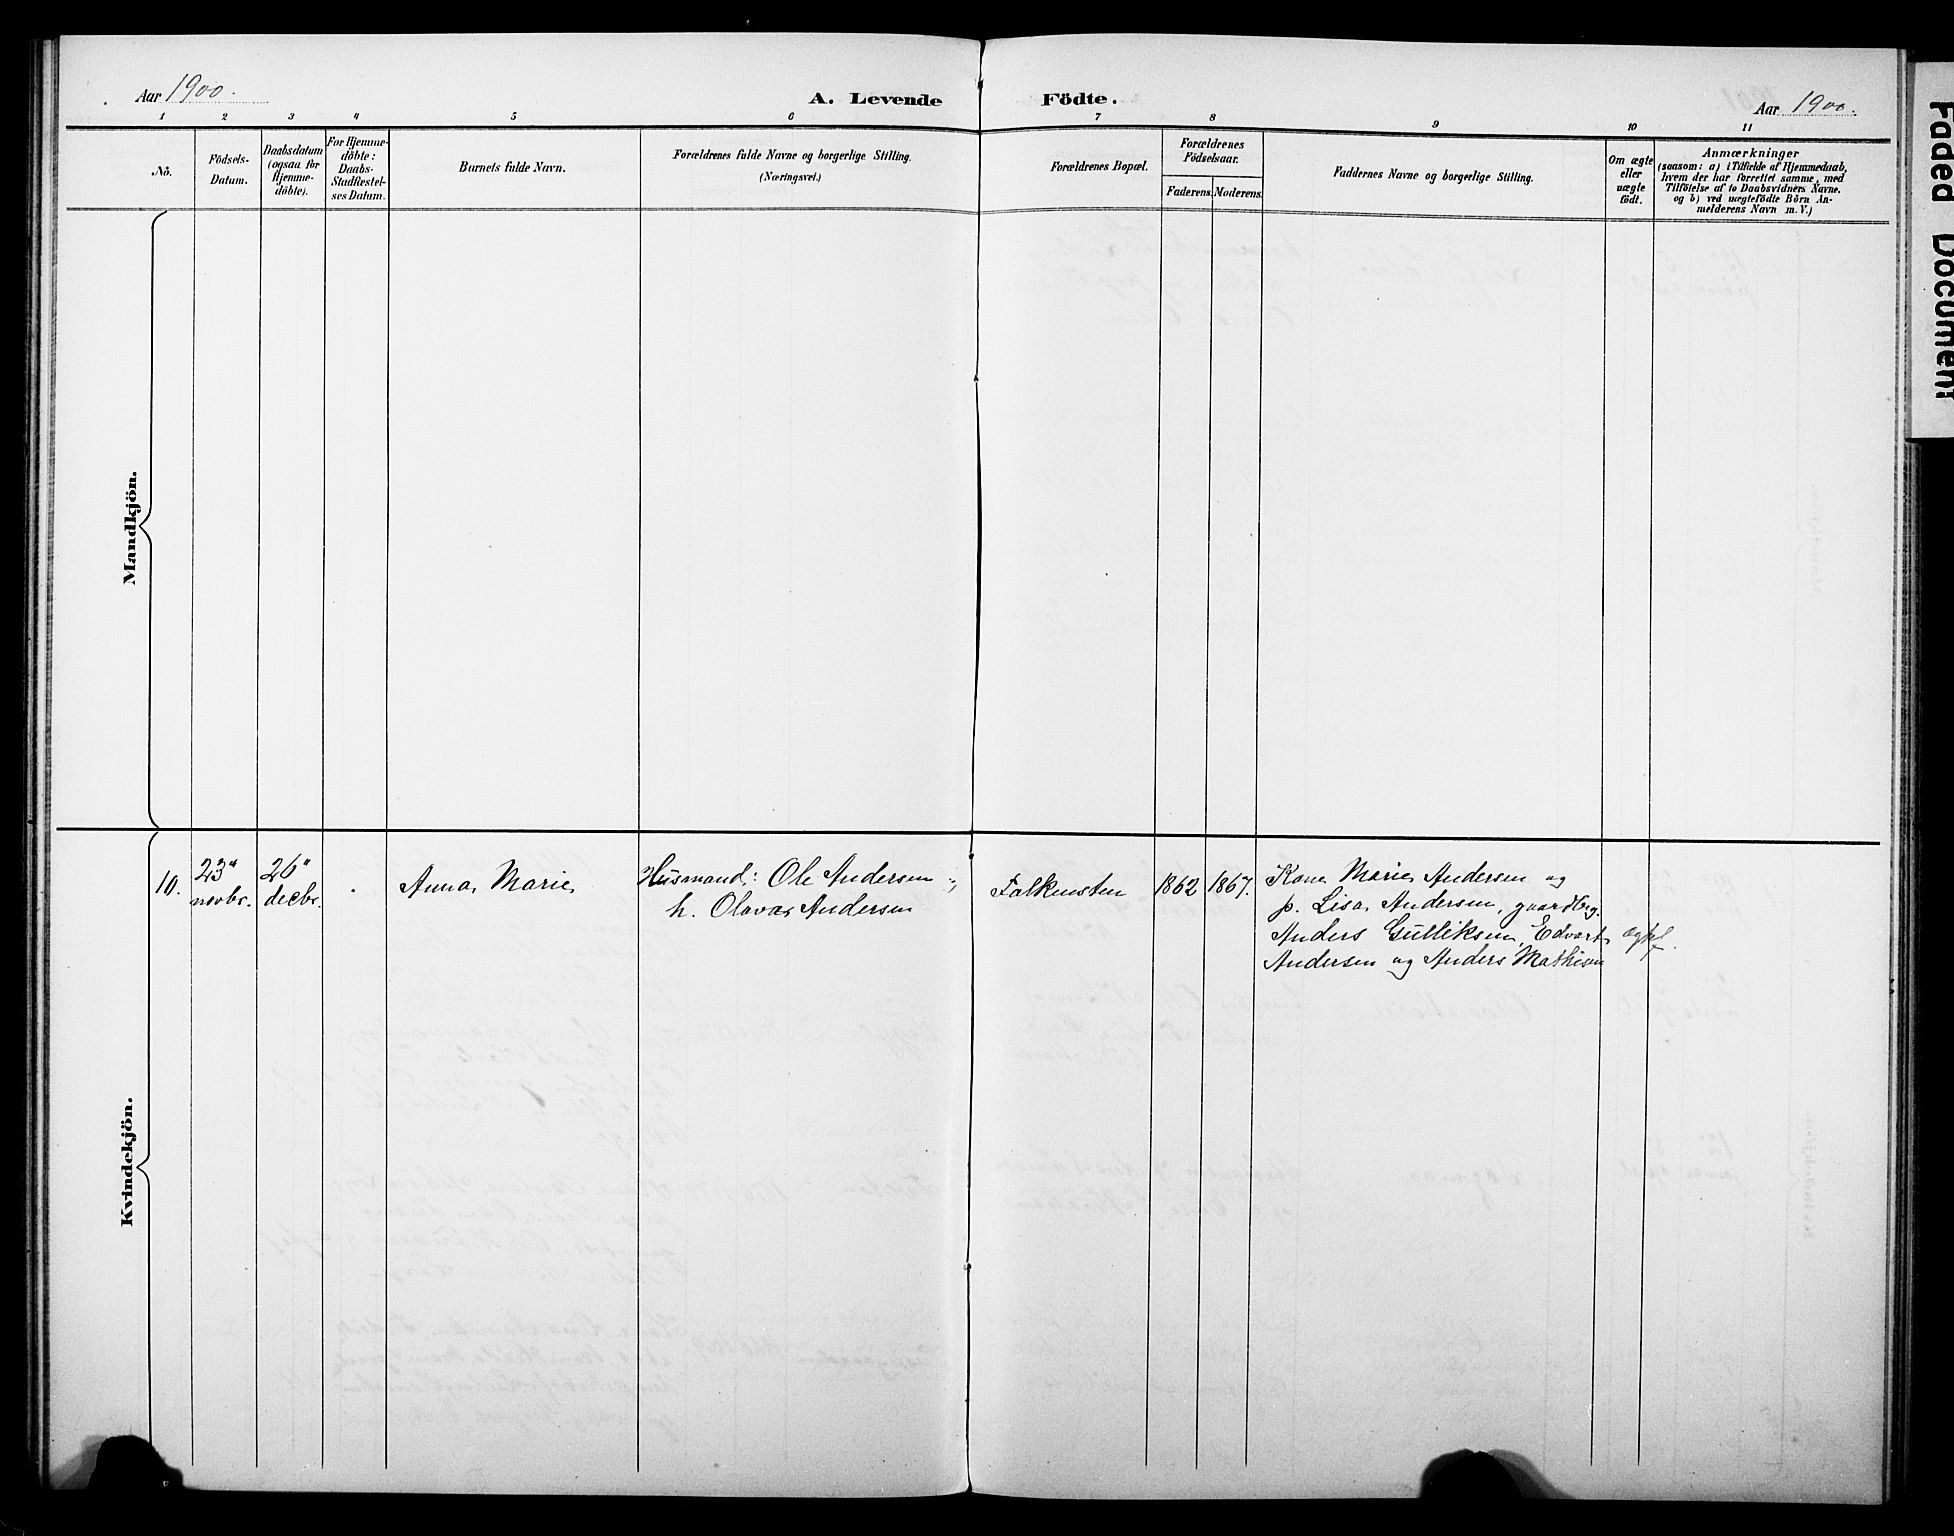 Aar 1900.
A. Levende Födte.
Aar 1900.
1 2 3 4 5 6 7 8 9 10 11
No.
Födsels-
Datum.
Daabsdatum
(ogsaa for
Hjemme-
döbte).
For Hjemme-
döbte:
Daabs-
Stadfestel-
ses Datum.
Barnets fulde Navn.
Forældrenes fulde Navne og borgerlige Stilling.
(Næringsvei.)
Forældrenes Bopæl.
Forældrenes
Födselsaar.
Faderens. Moderens.
Faddernes Navne og borgerlige Stilling.
Om ægte
eller
uægte
födt.
Anmærkninger
(saasom: a) i Tilfælde af Hjemmedaab,
hvem der har forrettet samme, med
Tilföielse af to Daabsvidners Navne.
og b) ved uægtefödte Börn An-
melderens Navn m. V.)
Mandkjön.
Kvindekjön.
10.
23"
novbr.
26"
decbr.
Anna Marie
Husmand: Ole Andersen
h. Olava Andersen
Falkensten
1862
1867.
Kone Marie Andersen og
p. Lisa Andersen, gaardbrg.
Anders Gulliksen, Edvart
Andersen og Anders Mathisen
ægte f.
Faded Document